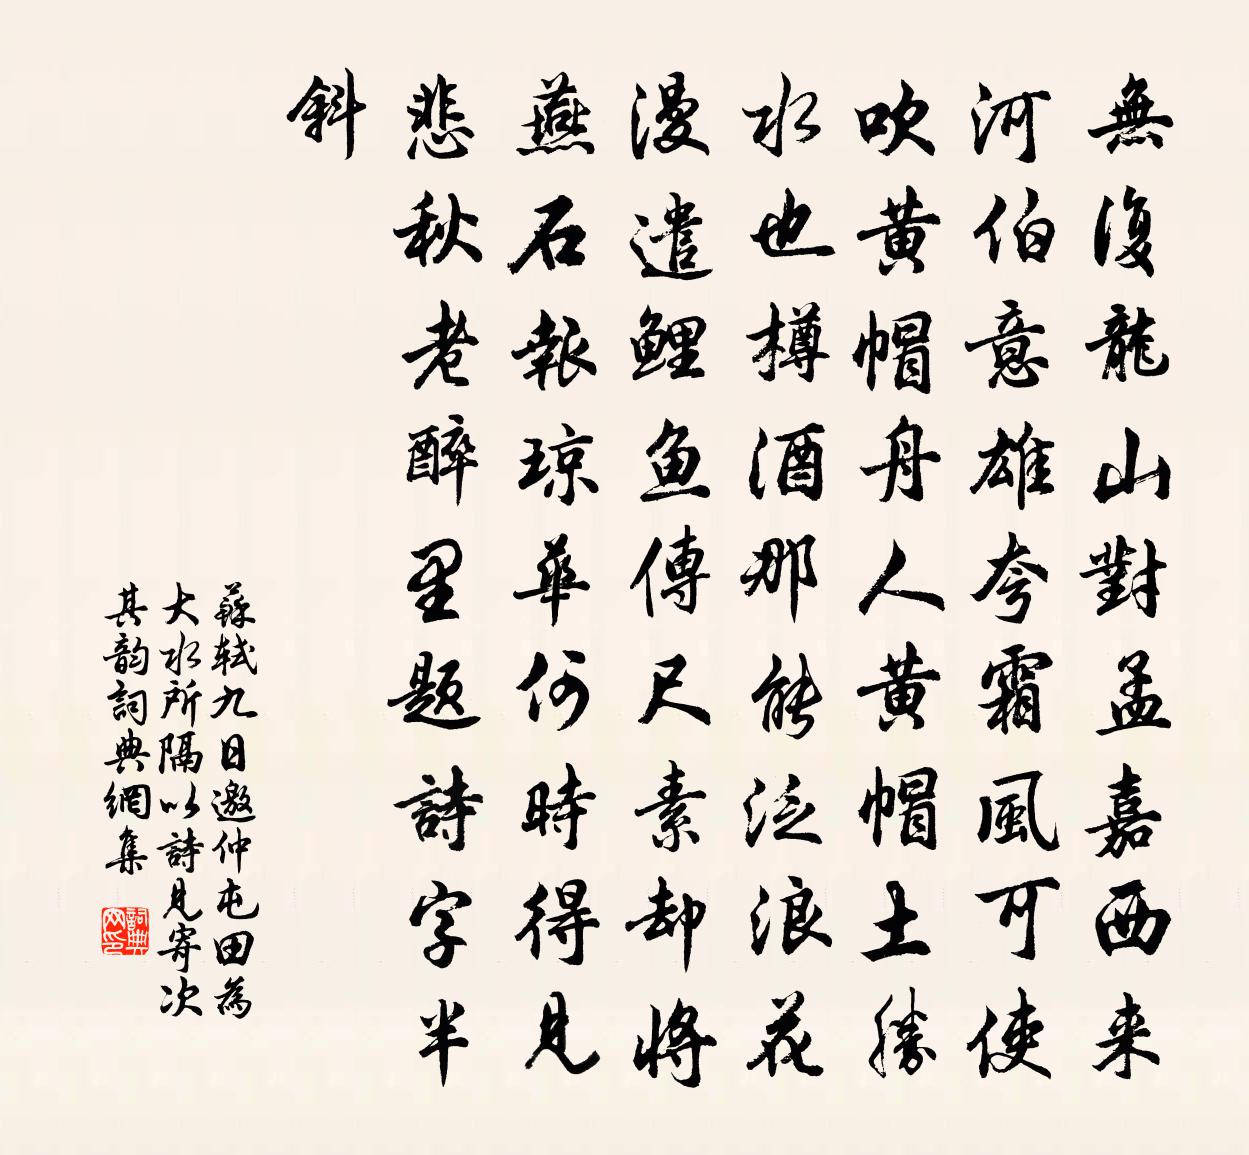 無復龍山對孟嘉西来
河伯意雄夸霜風可使
吹黄帽舟人黄帽土勝
水也樽酒那能泛浪花
漫遣鯉鱼傳尺素却將
燕石報琼華何時得見
悲秋老醉里題詩字半
斜
蘇軾九日邀仲屯田為
大水所隔以詩見寄次
其韵詞典網集
詞典
网印